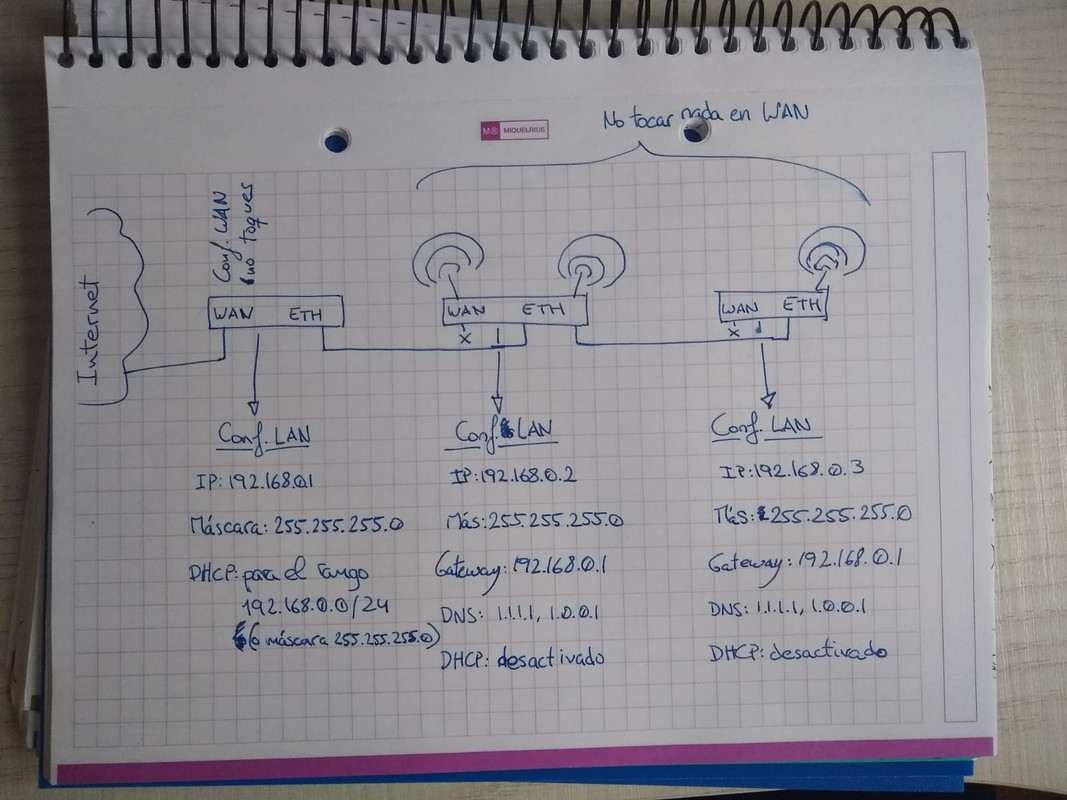 No tocar nada en WAN
M
MIQUELRIUS
Conf. WAN
no toques
Internet
WAN ETH
WAN ETH
WAN ETH
x
x
Conf. LAN
IP: 192.168.0.1
Máscara: 255.255.255.0
DHCP: para el rango
192.168.0.0/24
(o máscara 255.255.255.0)
Conf. LAN
IP: 192.168.0.2
Más: 255.255.255.0
Gateway: 192.168.0.1
DNS: 1.1.1.1, 1.0.0.1
DHCP: desactivado
Conf. LAN
IP: 192.168.0.3
Más: 255.255.255.0
Gateway: 192.168.0.1
DNS: 1.1.1.1, 1.0.0.1
DHCP: desactivado